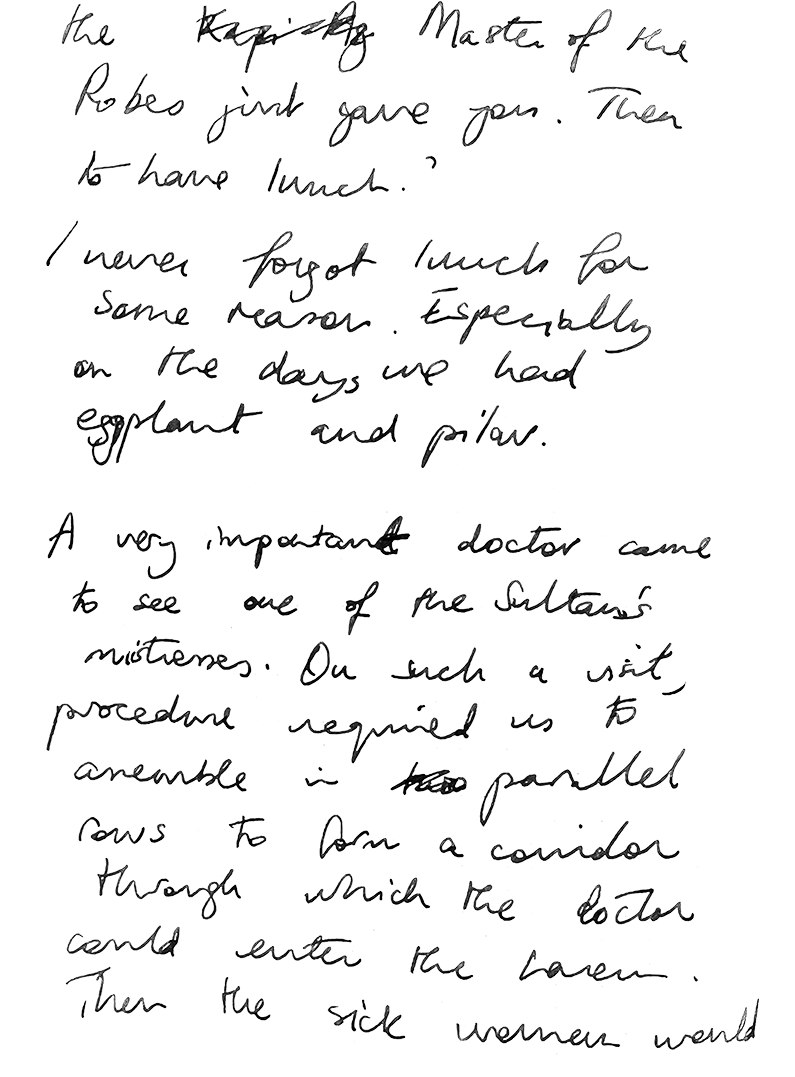 the Master of the
Robes just gave you. Then
to have lunch.'
I never forgot lunch for
some reason. Especially
on the days we had
eggplant and pilav.
A very important doctor came
to see one of the Sultan's
mistresses. On such a visit,
procedure required us to
assemble in parallel
rows to form a corridor
through which the doctor
could enter the harem.
Then the sick woman would